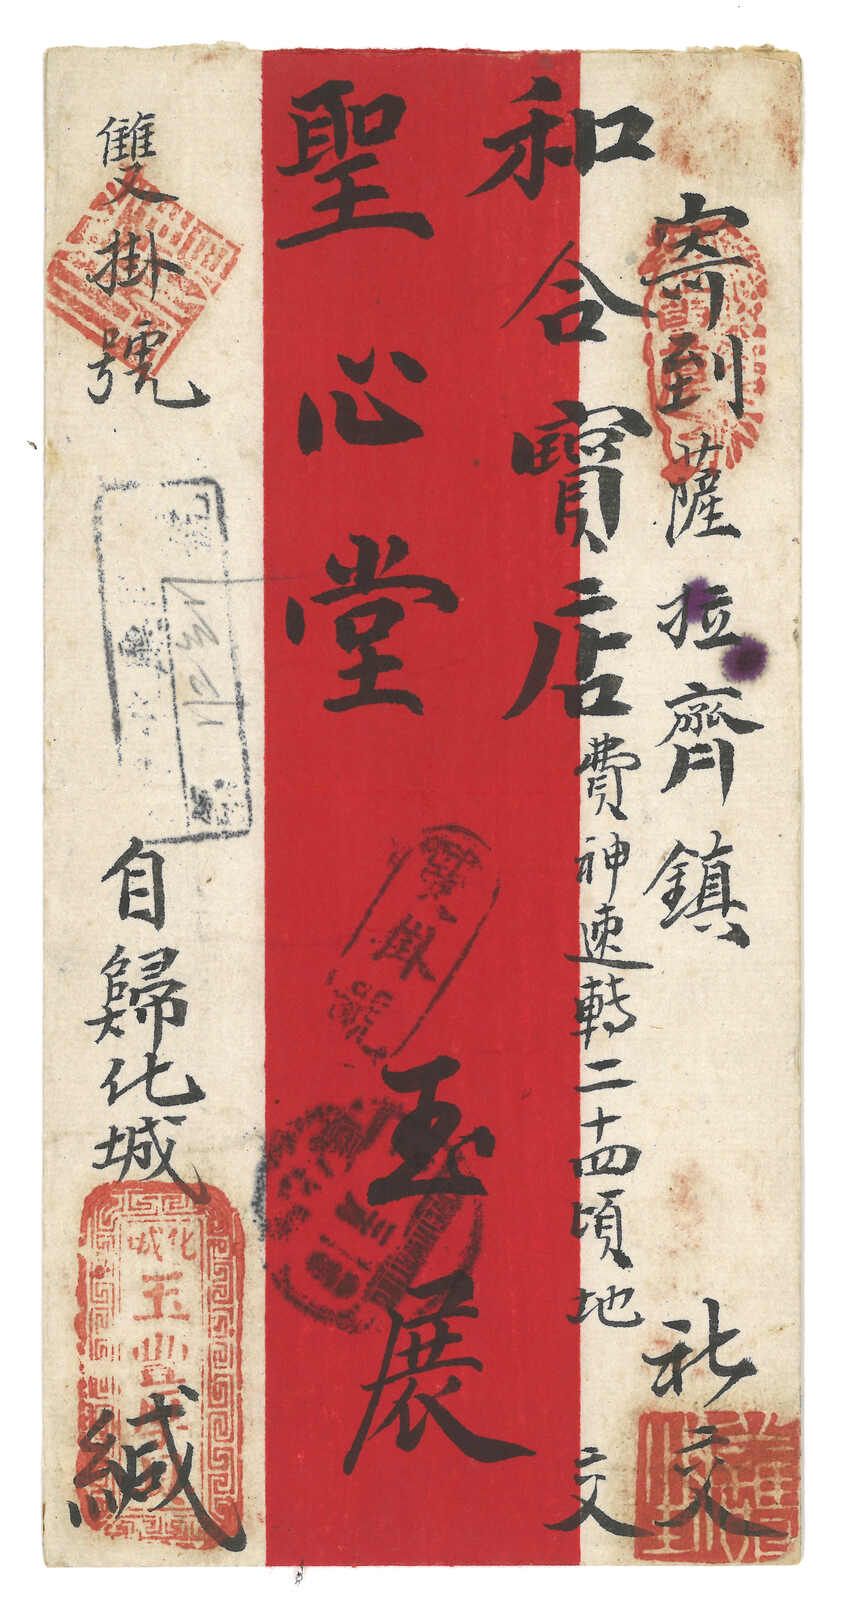 寄到薩拉齊鎮 祈交
和合寶店費神速轉二十四頃地 交
聖心堂 玉展
雙掛號
自歸化城
緘
化城
玉豐
雙掛號